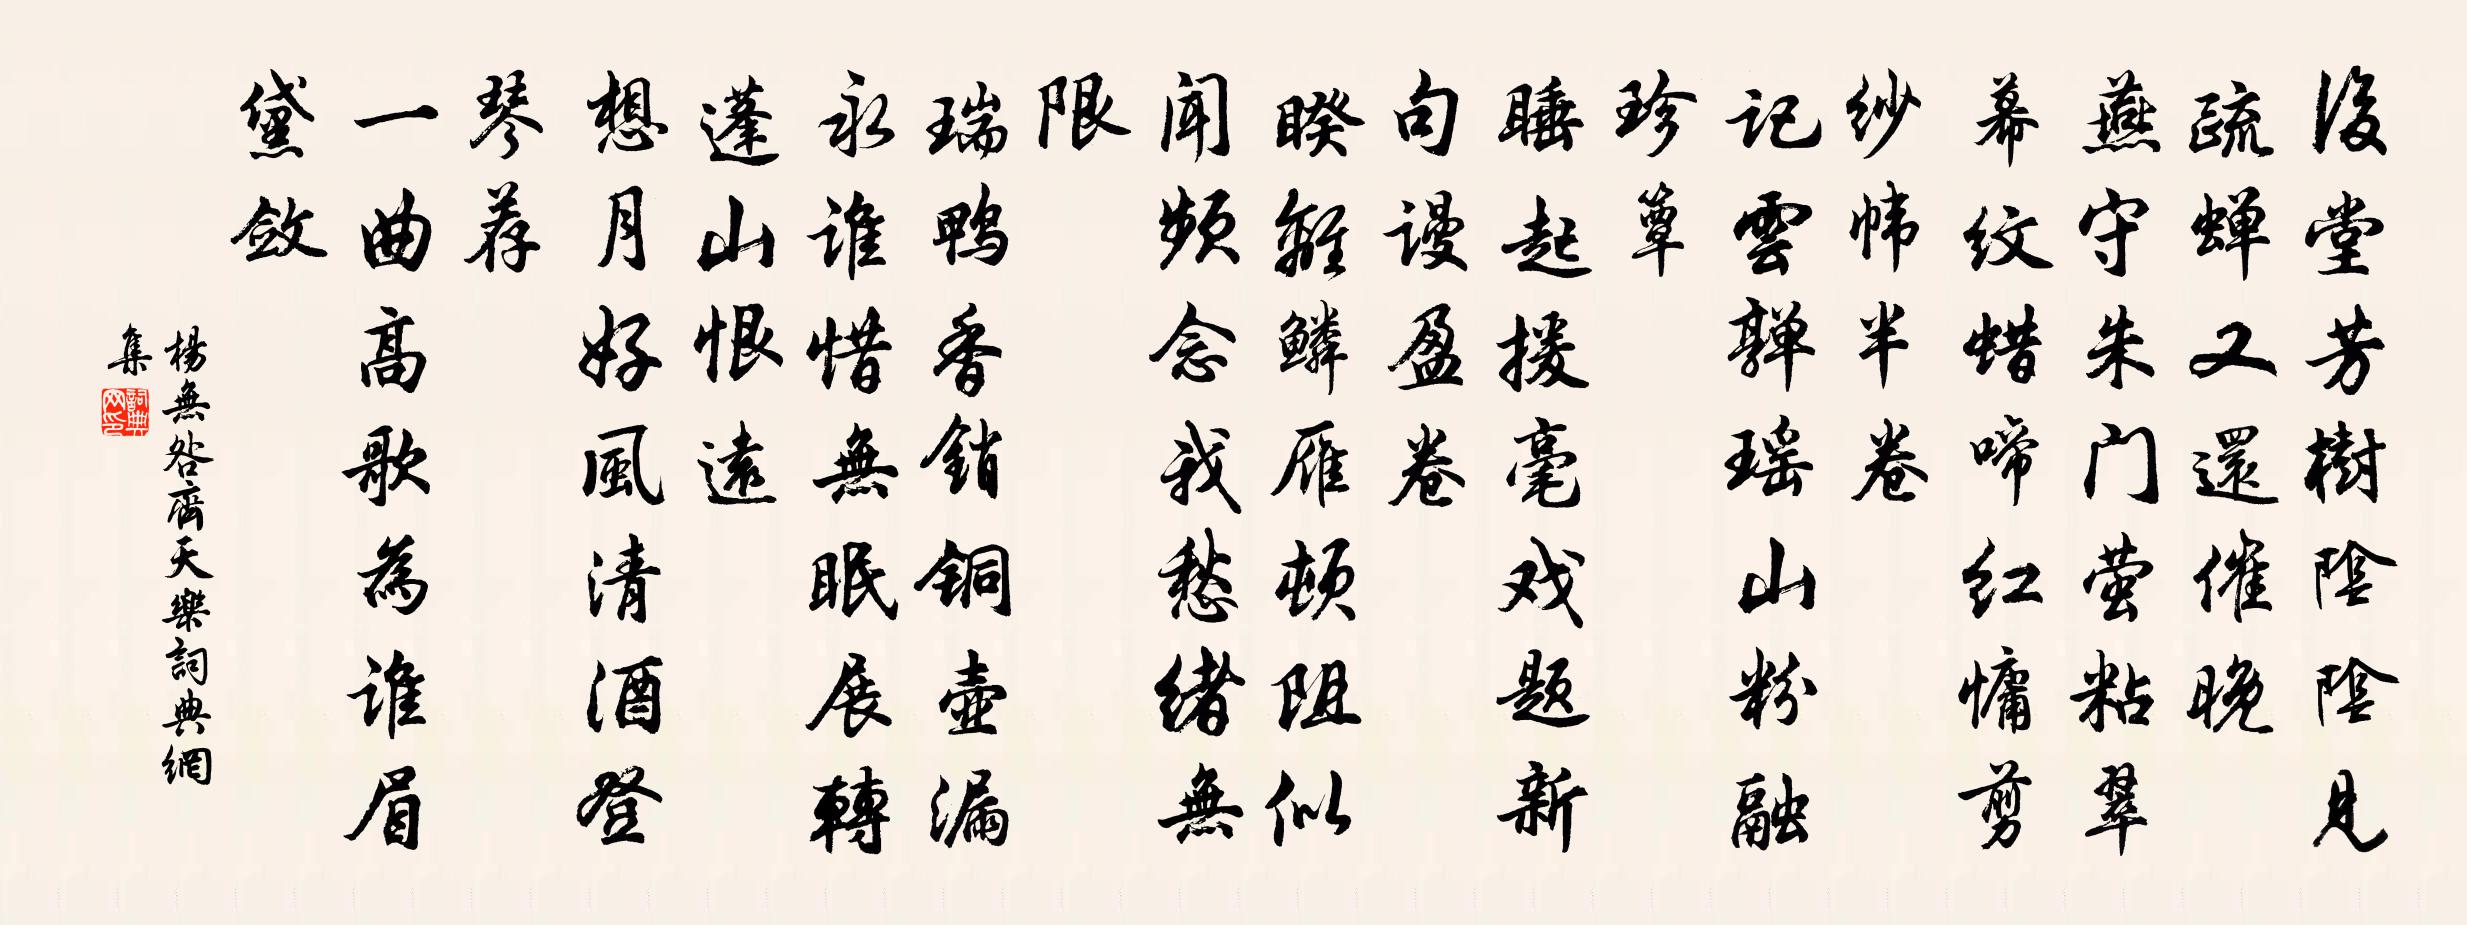 後堂芳樹陰陰見
疏蝉又還催晚
燕守朱门萤粘翠
幕纹蜡啼红慵剪
纱帏半卷
记雲軃瑶山粉融
珍簟
睡起援毫戏题新
句谩盈卷
睽離鳞雁顿阻似
闻频念我愁绪無
限
瑞鸭香銷铜壶漏
永谁惜無眠展轉
蓬山恨遠
想月好風清酒登
琴荐
一曲高歌為谁眉
黛敛
楊無咎齊天樂詞典網
集
詞典
网印